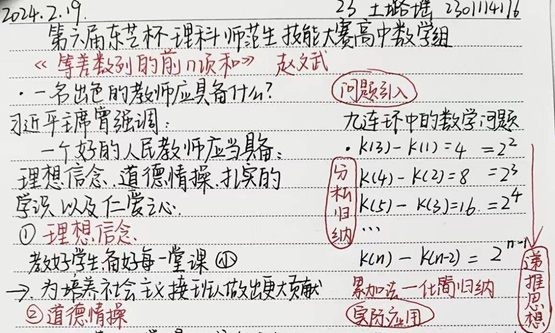 2024.2.19.
23 王璐瑶 2301114116
第六届东芝杯·理科师范生技能大赛高中数学组
《等差数列的前n项和》 赵文武
·一名出色的教师应具备什么?
习近平主席曾强调:
一个好的人民教师应当具备:
理想信念、道德情操、扎实的
学识以及仁爱之心.
① 理想信念
教好学生、备好每一堂课
→ 为培养社会主义接班人做出更大贡献
②道德情操
问题引入
九连环中的数学问题
·K(3)-K(1)=4=2²
K(4)-K(2)=8=2³
K(5)-K(3)=16=2⁴
…
K(n)-K(n-2)=2ⁿ⁻¹
分析归纳
累加法
归纳
实际应用
递推思想